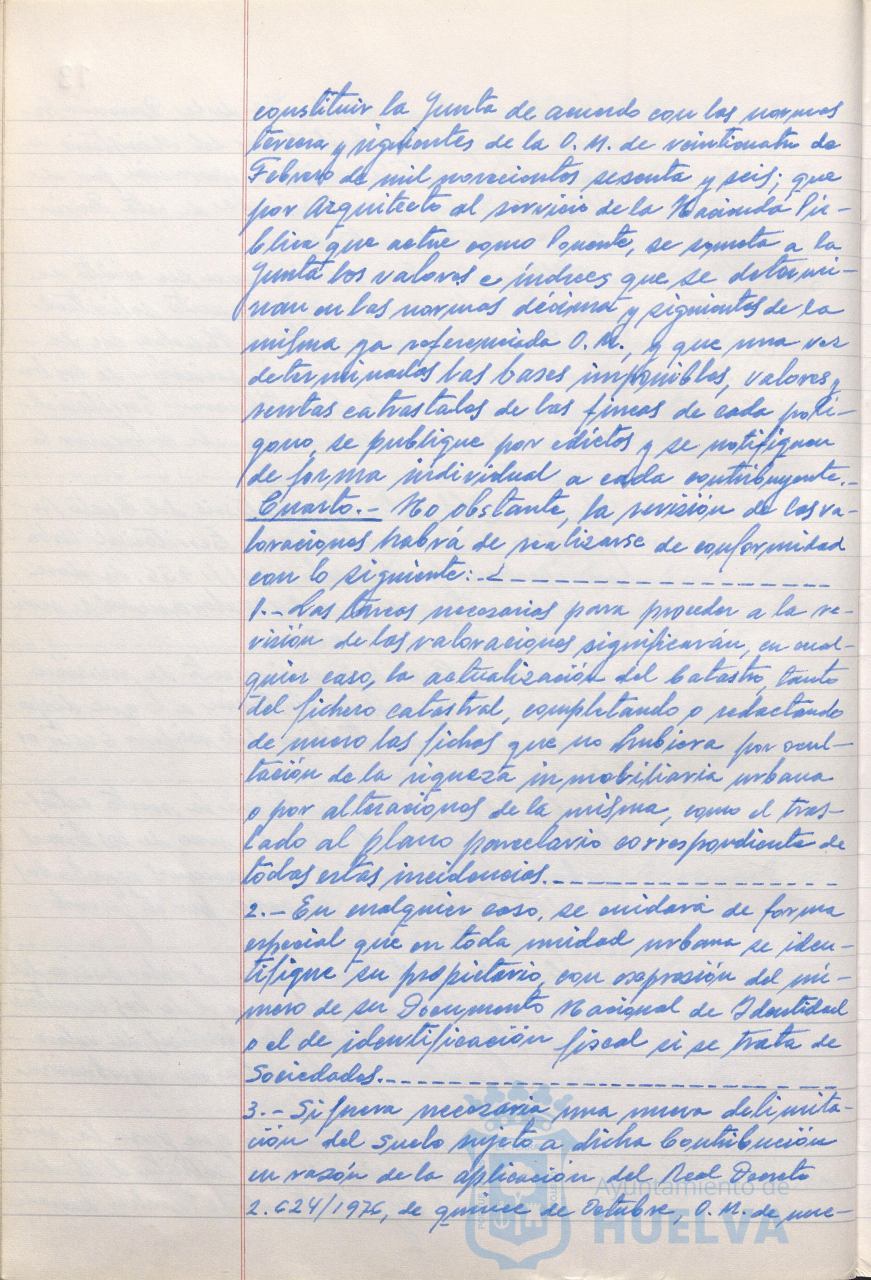 constituir la Junta de acuerdo con las normas
tercera y siguientes de la O. M. de veinticuatro de
Febrero de mil novecientos sesenta y seis; que
por Arquitecto al servicio de la Hacienda Pú-
blica que actue como Ponente, se someta a la
Junta los valores e índices que se determi-
nan en las normas décima y siguientes de la
misma ya referenciada O. M., y que una vez
determinados las bases imponibles, valores y
rentas catastrales de las fincas de cada polí-
gono, se publique por edictos y se notifiquen
de forma individual a cada contribuyente.-
Cuarto.- No obstante, la revisión de las va-
loraciones habrá de realizarse de conformidad
con lo siguiente:
1.- Las tareas necesarias para proceder a la re-
visión de las valoraciones significarán, en cual-
quier caso, la actualización del Catastro, tanto
del fichero catastral, completando o redactando
de nuevo las fichas que no hubiera por ocul-
tación de la riqueza inmobiliaria urbana
o por alteraciones de la misma, como el tras-
lado al plano parcelario correspondiente de
todas estas incidencias.
2.- En cualquier caso, se cuidará de forma
especial que en toda unidad urbana se iden-
tifique su propietario, con expresión del nú-
mero de su Documento Nacional de Identidad
o el de identificación fiscal si se trata de
Sociedades.
3.- Si fuera necesaria una nueva delimita-
ción del suelo sujeto a dicha Contribución
en razón de la aplicación del Real Decreto
2.624/1976, de quince de Octubre, O. M. de nue-
Ayuntamiento de
HUELVA